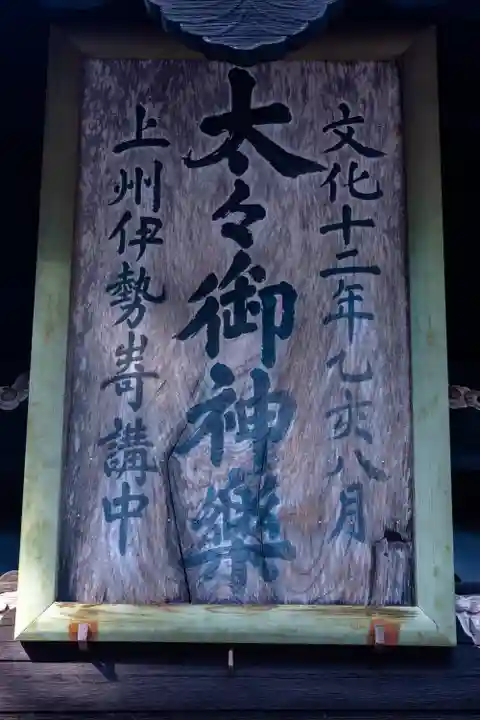 文化十二年乙亥八月
太々御神樂
上州伊勢嵜講中